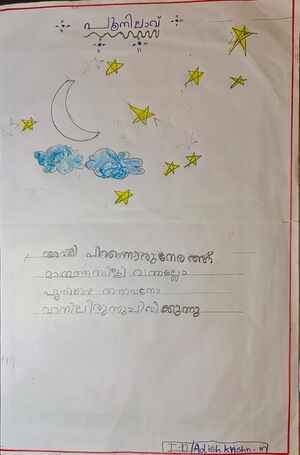 പൂനിലാവ്
രാത്രി പിറന്നൊരുനേരത്ത്
മാനത്തമ്പിളി വന്നല്ലോ
പൂനിലാവ് തന്നവനോ
വാനിലിരുന്നുചിരിക്കുന്നു
I-D Adish krishn-m